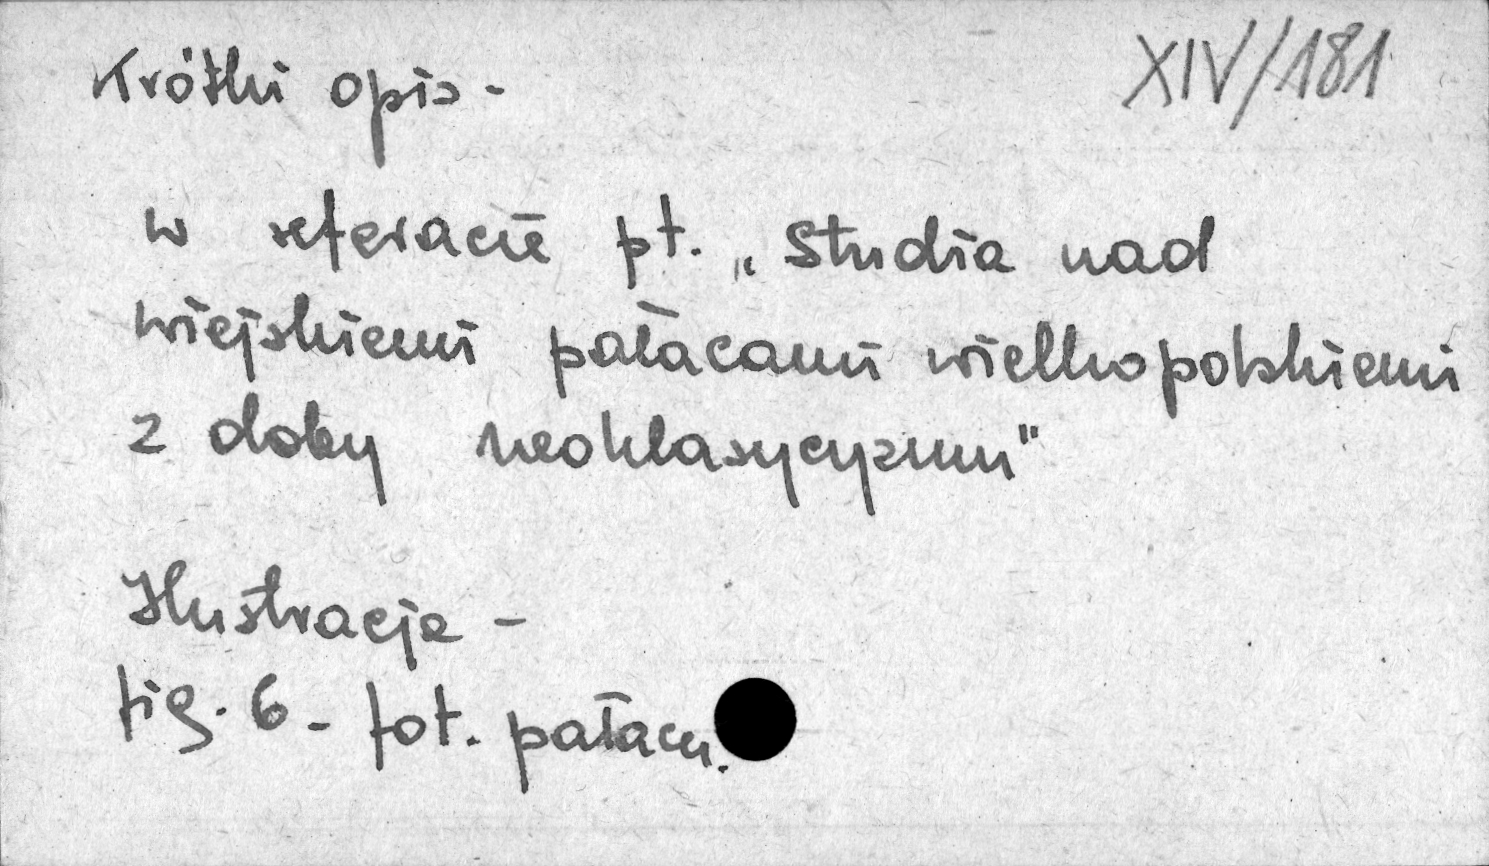 XIV/181
Krótki opis -
w referacie pt. „Studia nad
wiejskiemi pałacami wielkopolskiemi
z doby neoklasycyzmu"
Ilustracje -
fig. 6 - fot. pałacu.